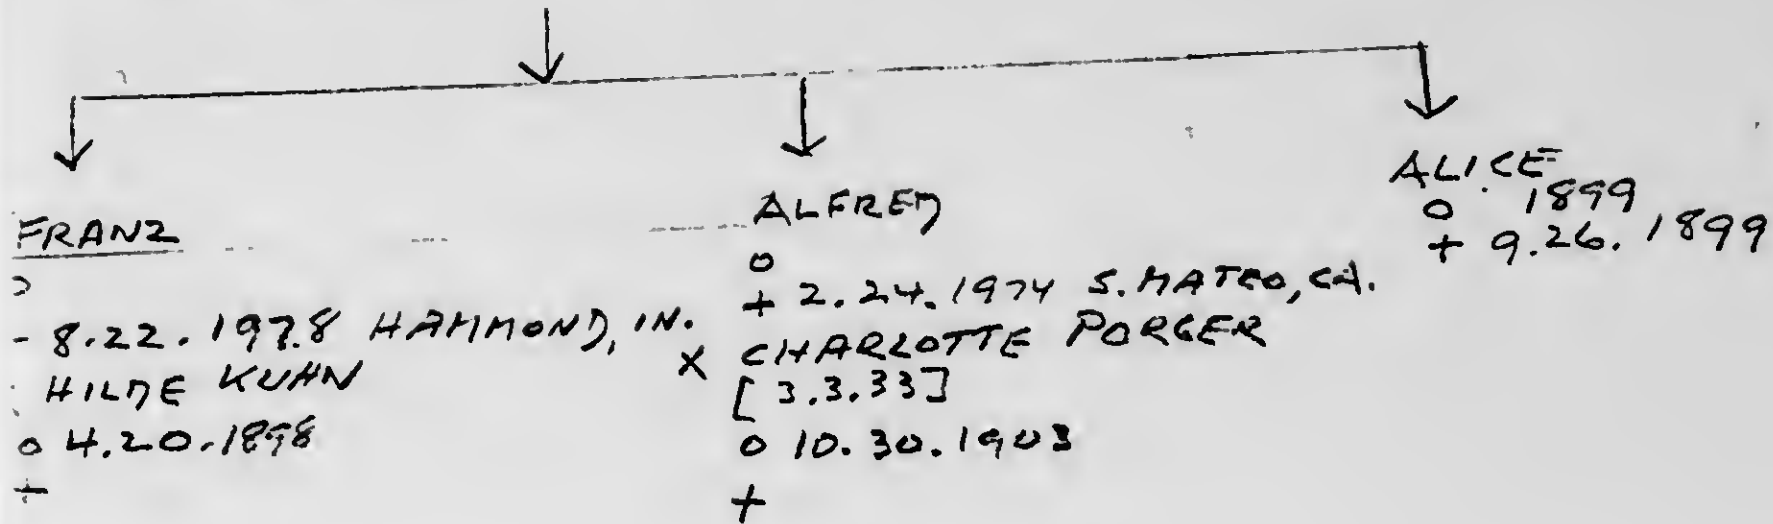 FRANZ
- 8.22.1978 HAMMOND, IN.
HILDE KUHN
o 4.20.1898
+
ALFRED
o
+ 2.24.1974 S. MATEO, CA.
x CHARLOTTE PORGER
[3.3.33]
o 10.30.1903
+
ALICE
o 1899
+ 9.26.1899